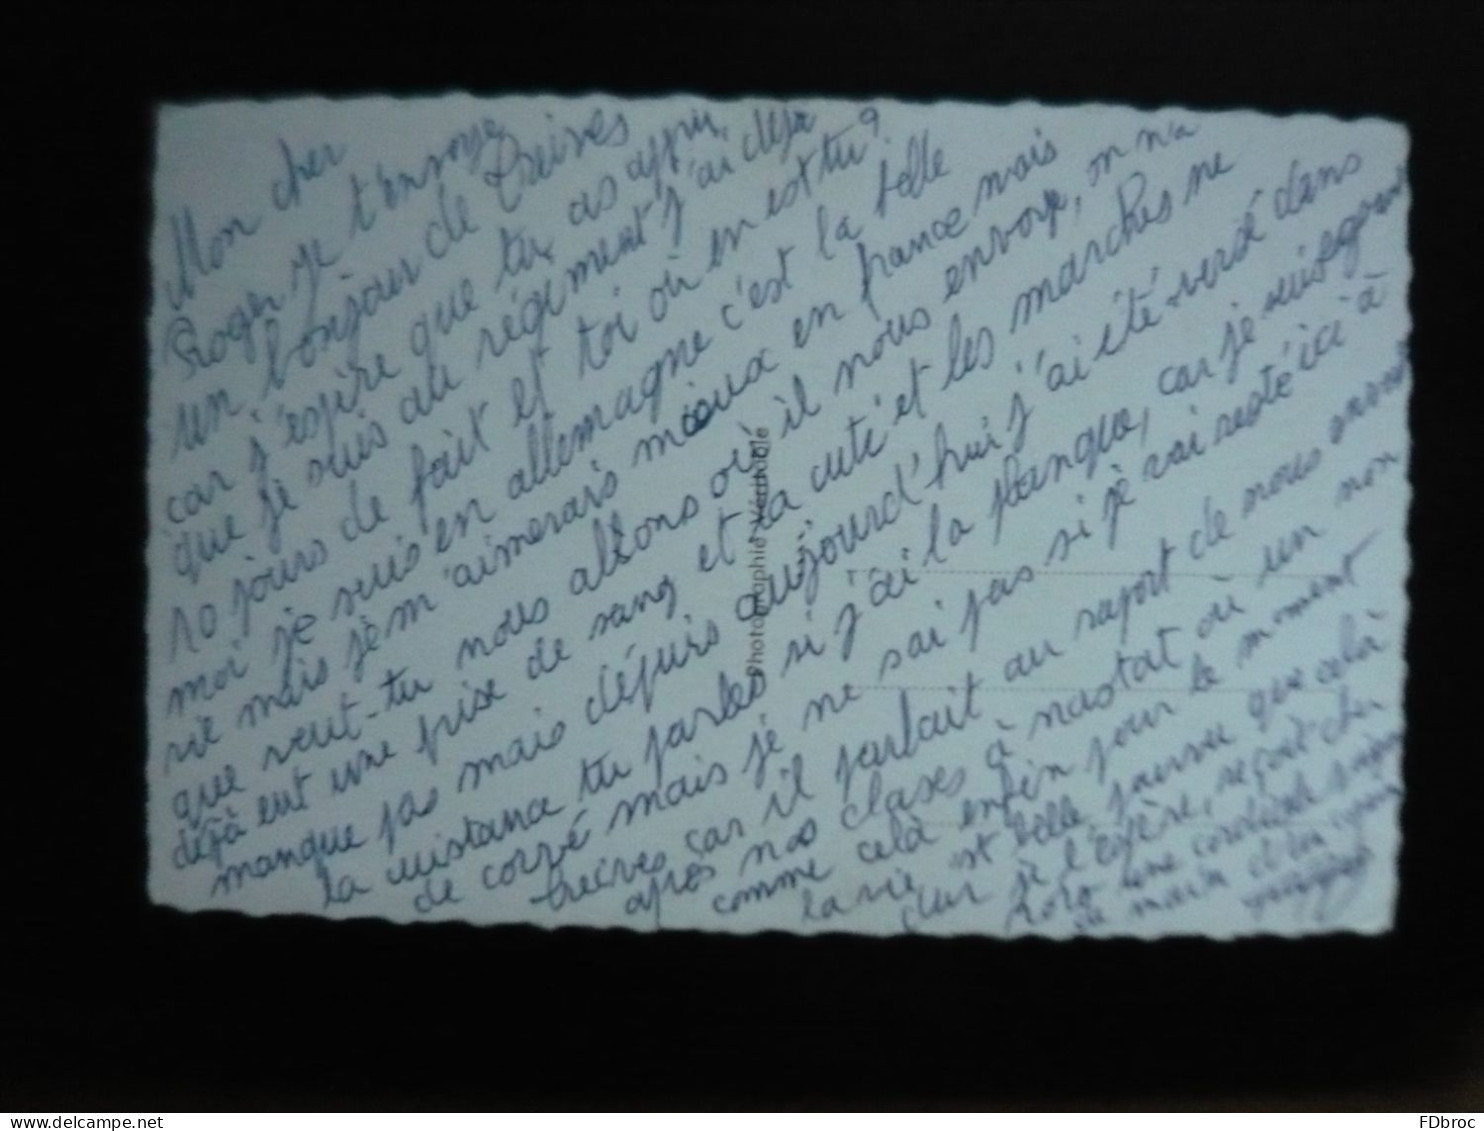 Mon cher
Roger je t'envoye
un bonjour de Treives
car j'espère que tu as appris
que je suis au régiment j'ai deja
10 jours de fait et toi où en est tu?
moi je suis en allemagne c'est la belle
vie mais je m'aimerais mieux en france mais
que veut-tu nous allons où il nous envoye, on n'a
déjà eut une prise de sang et la cuti et les marches ne
manque pas mais dépuis aujourd'hui j'ai été versé dans
la tu parles si j'ai la planque, car je suis
de corvé mais je ne sai pas si je vai resté ici à
treives car il parlait au raport de nous
après nos clases à où un non
comme celà enfin pour le moment
la vie est belle pourvu que celà
dur je l'espère, reçoit cher
roro une cordiale
de main
Photographie Véritable
FDbroc